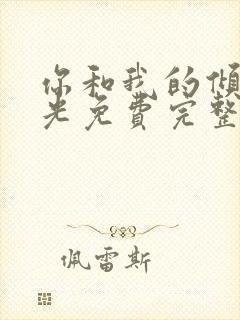 你和我的倾
光免费完整
佩雷斯